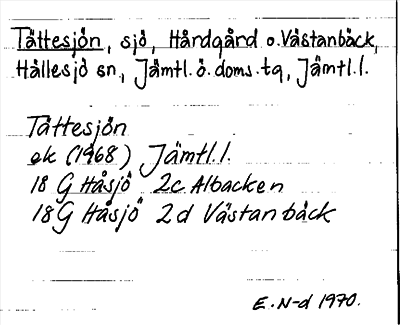 Tåttesjön, sjö, Hårdgård o. Västanbäck,
Hällesjö sn., Jämtl. ö. doms. tg, Jämtl. l.
Tåttesjön
ek (1968) Jämtl. l.
18 G Håsjö 2c Albacken
18 G Håsjö 2d Västanbäck
E. N-d 1970.